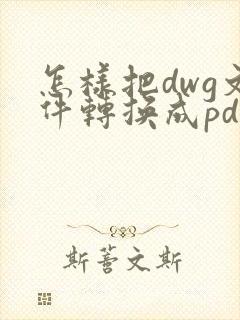 怎樣把dwg文
件轉換成pd
斯蒼文斯